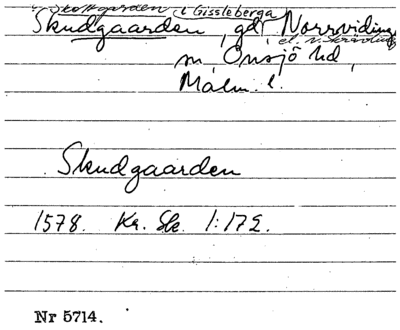 Skottgården i Gissleberga
Skudgaarden, gd, Norrvidinge
el. N. Skrävlinge
sn, Onsjö hd,
Malm. l.
Skudgaarden
1578. Kr. Sk. 1:172.
Nr 5714.